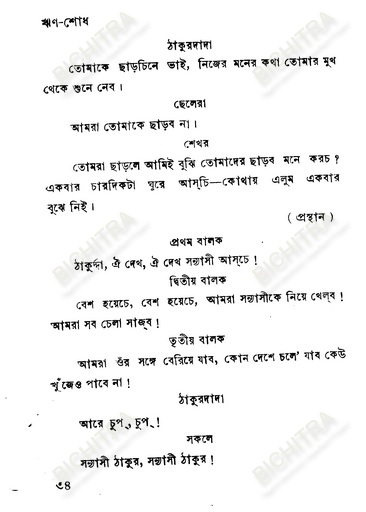 ঋণ-শোধ
ঠাকুরদাদা
তোমাকে ছাড়চিনে ভাই, নিজের মনের কথা তোমার মুখ
থেকে শুনে নেব।
ছেলেরা
আমরা তোমাকে ছাড়ব না।
শেখর
তোমরা ছাড়লে আমিই বুঝি তোমাদের ছাড়ব মনে করচ?
একবার চারদিকটা ঘুরে আস্‌চি—কোথায় এলুম একবার
বুঝে নিই।
( প্রস্থান )
প্রথম বালক
ঠাকুর্দ্দা, ঐ দেখ, ঐ দেখ সন্ন্যাসী আস্‌চে!
দ্বিতীয় বালক
বেশ হয়েচে, বেশ হয়েচে, আমরা সন্ন্যাসীকে নিয়ে খেল্‌ব!
আমরা সব চেলা সাজ্‌ব!
তৃতীয় বালক
আমরা ওঁর সঙ্গে বেরিয়ে যাব, কোন দেশে চলে’ যাব কেউ
খুঁজেও পাবে না!
ঠাকুরদাদা
আরে চুপ্‌, চুপ্‌!
সকলে
সন্ন্যাসী ঠাকুর, সন্ন্যাসী ঠাকুর!
৩৪
BICHITRA
BICHITRA
BICHITRA
BICHITRA
BICHITRA
BICHITRA